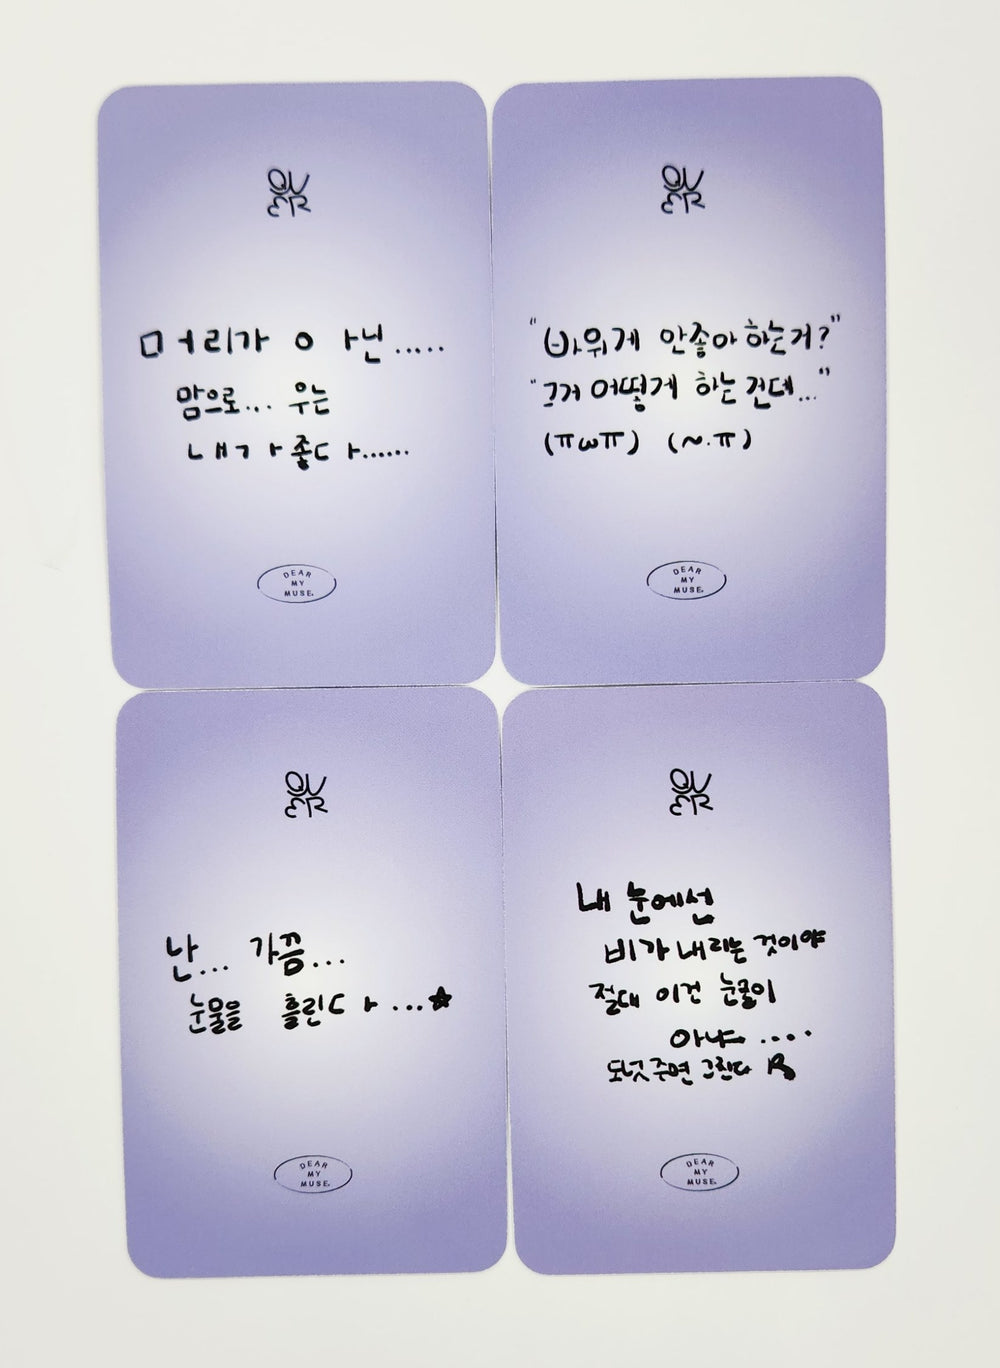 QW
ER
머리가 아닌.....
맘으로... 우는
내가 좋다......
DEAR
MY
MUSE.
QW
ER
"바위게 안좋아하는거?"
"그거 어떻게 하는 건데..."
(ㅠωㅠ) (~.ㅠ)
DEAR
MY
MUSE.
QW
ER
난... 가끔...
눈물을 흘린다...★
DEAR
MY
MUSE.
QW
ER
내 눈에선
비가 내리는 것이야
절대 이건 눈물이
아냐....
도넛주면 그친다
DEAR
MY
MUSE.